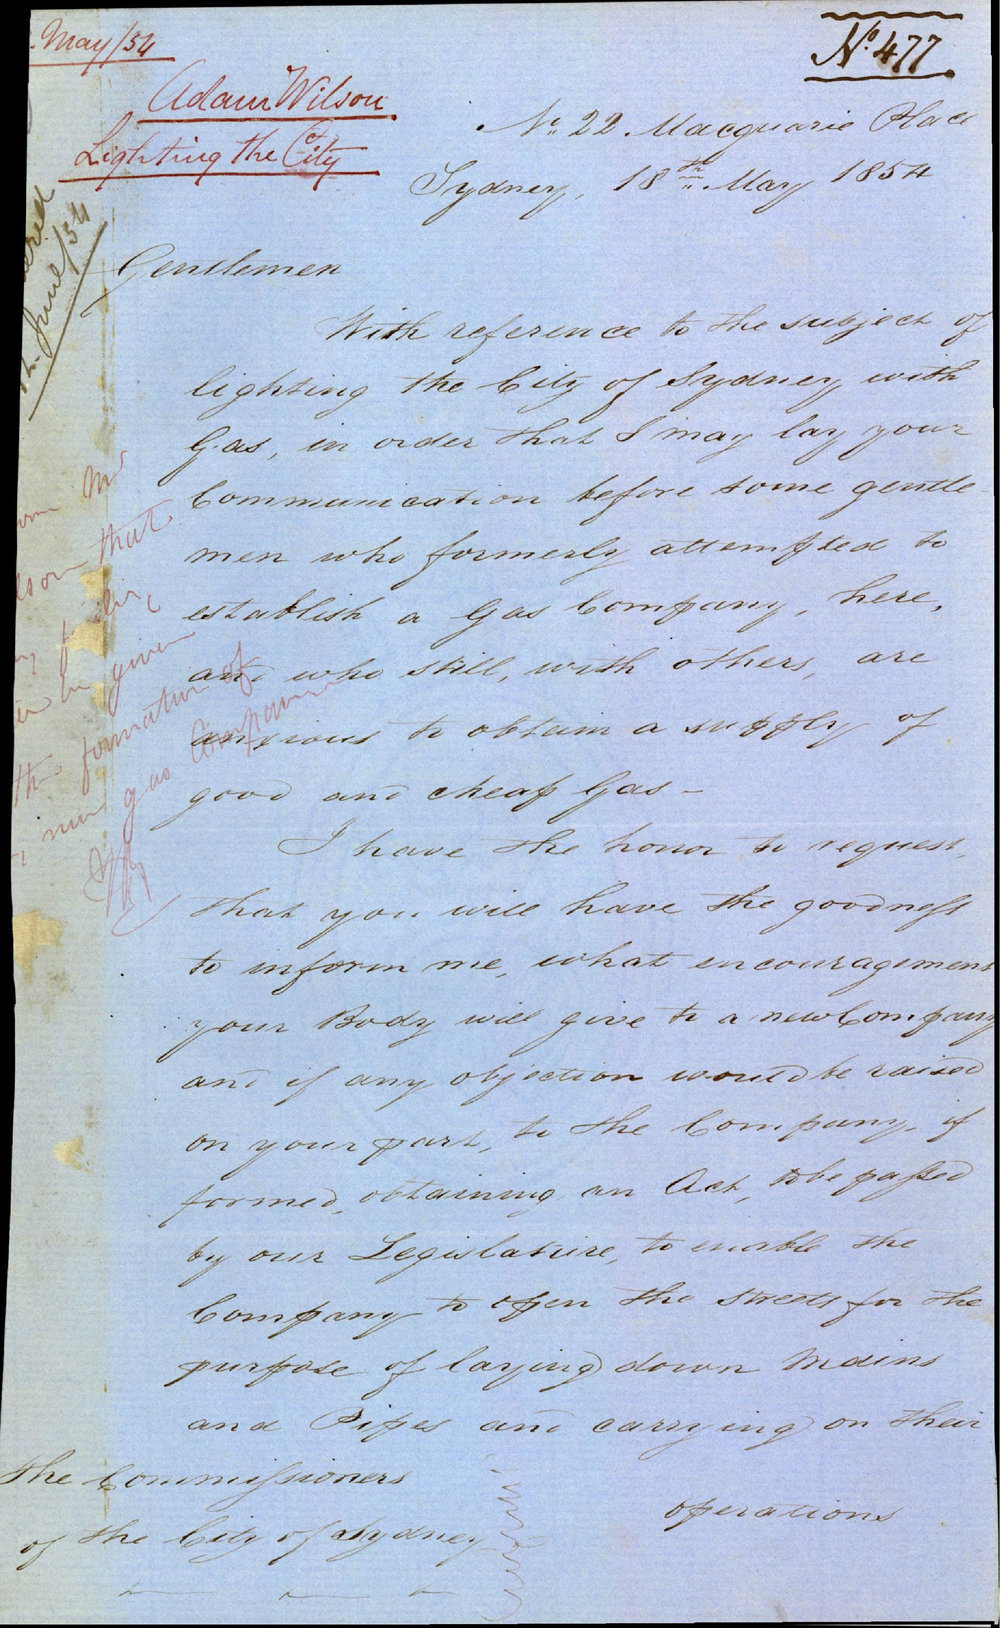 May/54
No. 477
Adam Wilson
Lighting the City
No. 22 Macquarie Place
Sydney, 18th May 1854
June/54
Gentlemen
With reference to the subject of
lighting the City of Sydney with
Gas, in order that I may lay your
Communication before some gentle-
men who formerly attempted to
establish a Gas Company, here,
and who still, with others, are
anxious to obtain a supply of
good and cheap Gas -
Mr
that
be given
the formation of
new gas Company
I have the honor to request,
that you will have the goodness
to inform me, what encouragement
your Body will give to a new Company
and if any objection would be raised
on your part, to the Company, if
formed, obtaining an Act, to be passed
by our Legislature, to enable the
Company to open the streets for the
purpose of laying down Mains
and Pipes and carrying on their
operations
The Commissioners
of the City of Sydney